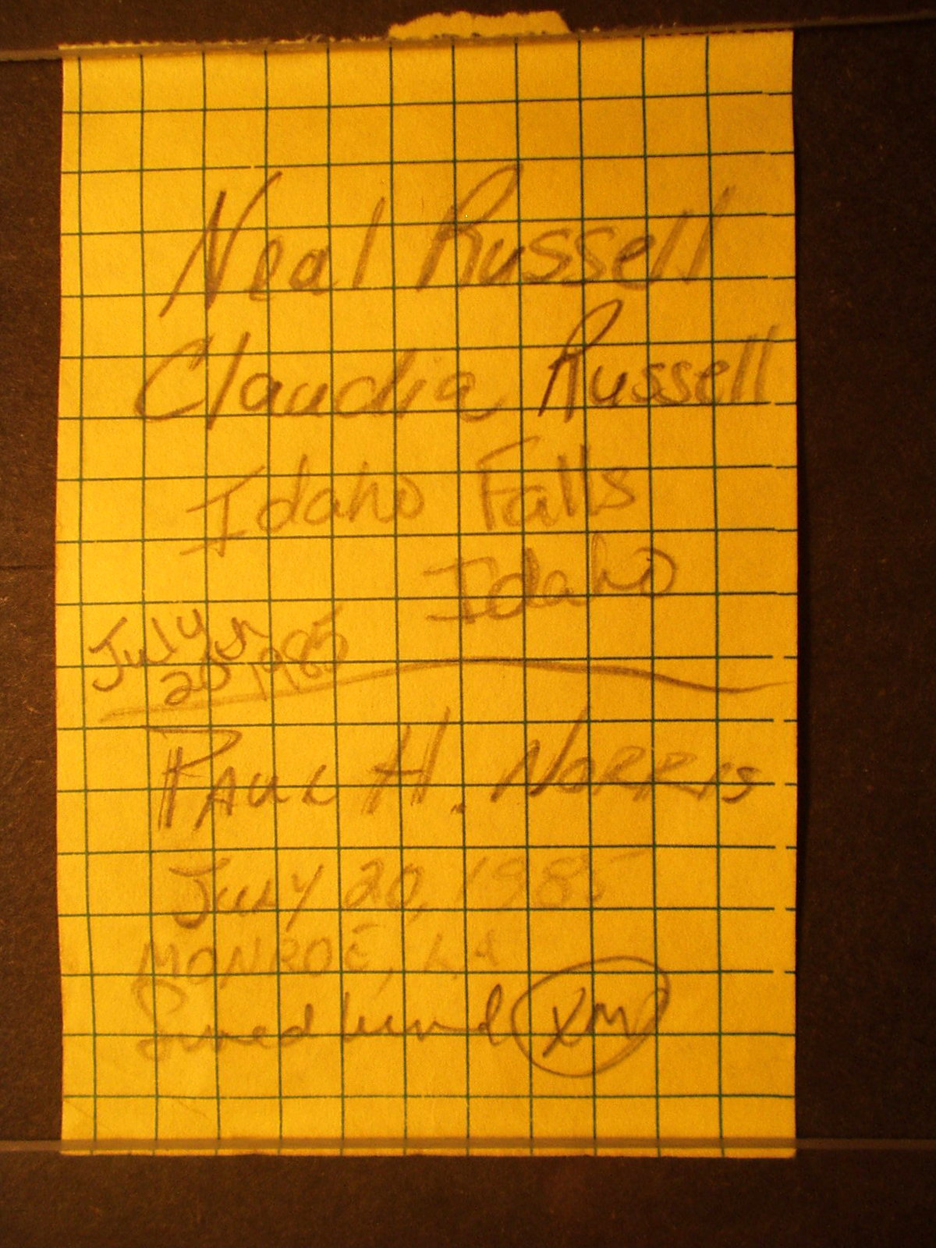 Neal Russell
Claudia Russell
Idaho Falls
Idaho
July
20 1985
PAUL H. NORRIS
JULY 20, 1985
MONROE, LA